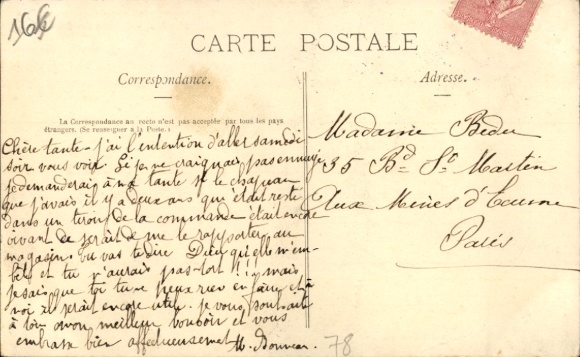 168
CARTE POSTALE
Correspondance.
Adresse.
La Correspondance au recto n'est pas acceptée par tous les pays
étrangers. (Se renseigner à la Poste.)
Chère tante j'ai l'intention d'aller samedi
soir vous voir Si je ne craignais pas ennuyer
je demanderais à ma tante si le chapeau
que j'avais il y a deux ans qui était resté
dans un tiroir de la commande était encore
vivant de serait de me le rapporter au
magasin tu vas te dire Dieu qu'elle m'em-
bête et tu n'aurais pas tort!!! mais
je sais que toi tu ne peux rien en faire et à
moi il serait encore utile. Je vous souhaite
à tous mon meilleur bonsoir et vous
embrasse bien affectueusement M. Bonneau
Madame Bedu
35 Bd St Martin
Aux Mines d'
Paris
78